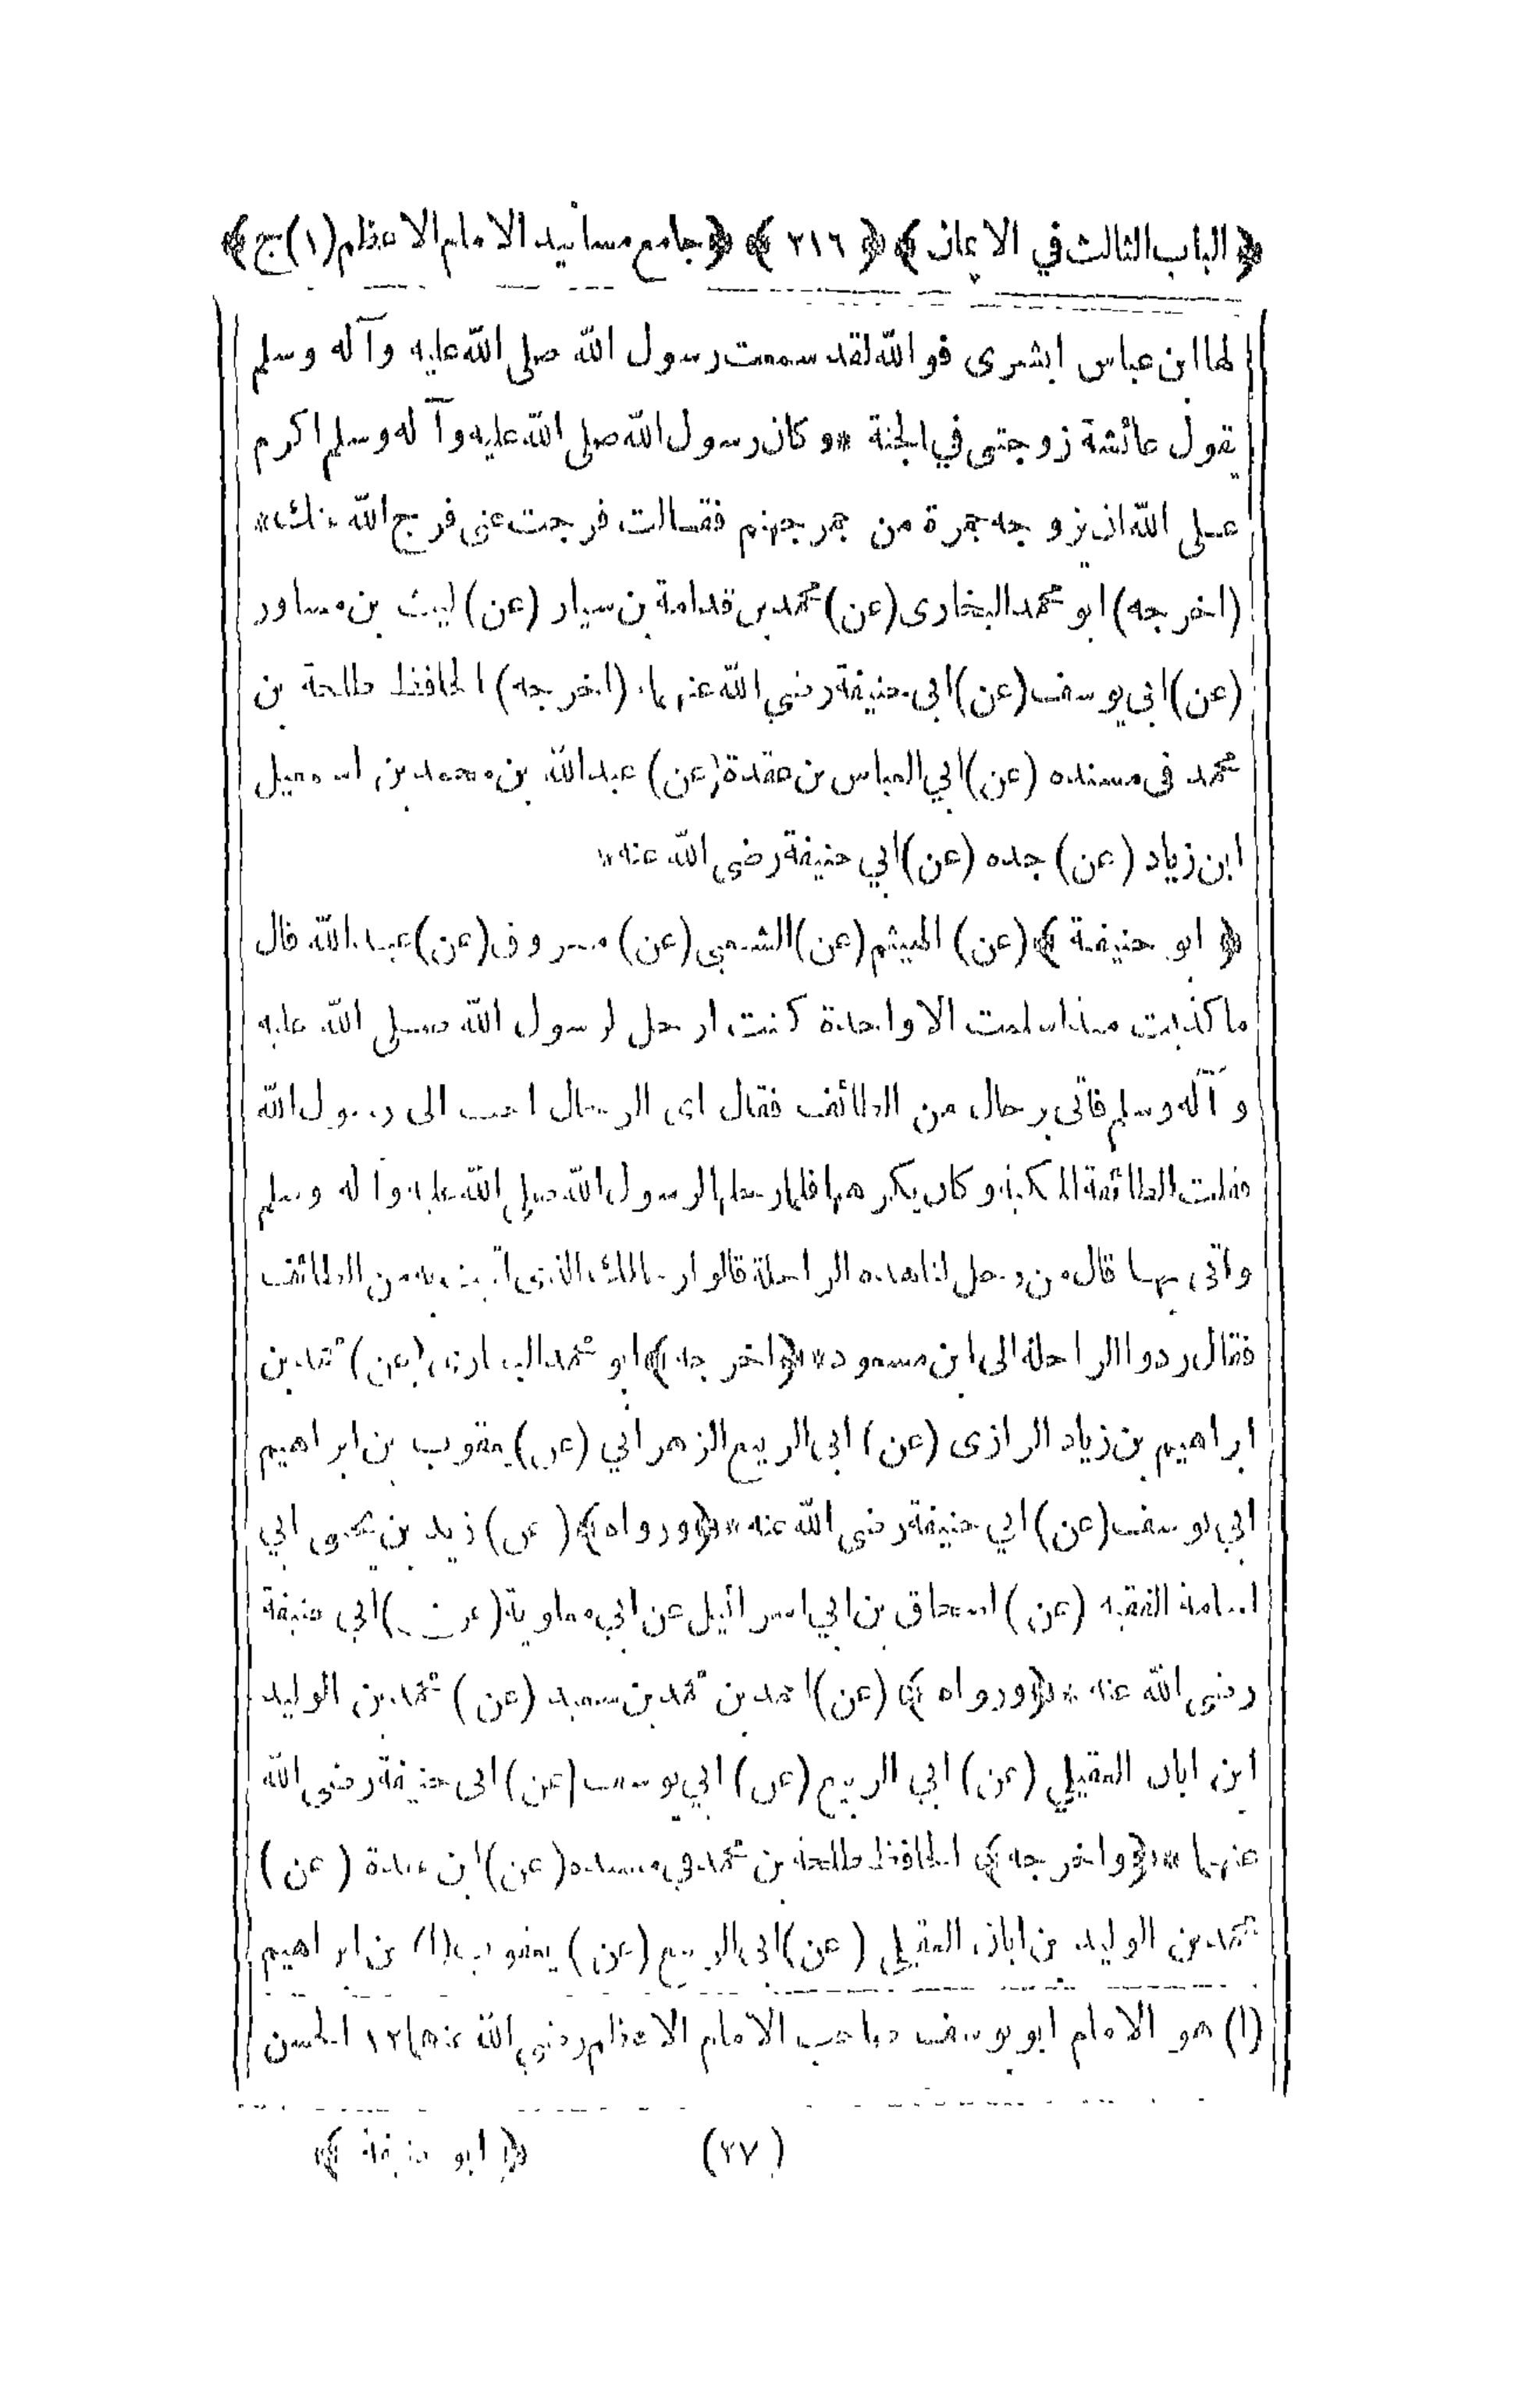 ﴿ الباب الثالث في الايمان ﴾ ﴿ ٢١٦ ﴾ ﴿ جامع مسانيد الامام الاعظم (١) ج ﴾
لها ابن عباس ابشرى فو الله لقد سمعت رسول الله صلى الله عليه وآله وسلم
يقول عائشة زوجتى في الجنة * وكان رسول الله صلى الله عليه وآله وسلم اكرم
على الله ان يزوجه جمرة من جمر جهنم فقالت فرجت عنى فرج الله عنك *
(اخرجه) ابو محمد البخارى (عن) محمد بن قدامة بن سيار (عن) ليث بن مساور
(عن) ابي يوسف (عن) ابي حنيفة رضي الله عنهما * (اخرجه) الحافظ طلحة بن
محمد فى مسنده (عن) ابي العباس بن عقدة (عن) عبد الله بن محمد بن اسمعيل
ابن زياد (عن) جده (عن) ابي حنيفة رضى الله عنه *
﴿ ابو حنيفة ﴾ (عن) الهيثم (عن) الشعبى (عن) مسروق (عن) عبد الله قال
ما كذبت منذ اسلمت الا واحدة كنت ارحل لرسول الله صلى الله عليه
وآله وسلم فاتى برحال من الطائف فقال اى الرحال احب الى رسول الله
فقلت الطائفة المكية وكان يكرهها فلما رحلها لرسول الله صلى الله عليه وآله وسلم
واتى بها قال من رحل لنا هذه الراحلة قالوا رحالك الذى اتيت به من الطائف
فقال ردوا الراحلة الى ابن مسعود * ﴿ اخرجه ﴾ ابو محمد البخارى (عن) محمد بن
ابراهيم بن زياد الرازى (عن) ابى الربيع الزهراني (عن) يعقوب بن ابراهيم
ابي يوسف (عن) ابي حنيفة رضى الله عنه * ﴿ ورواه ﴾ (عن) زيد بن يحيى ابي
اسامة الفقيه (عن) اسحاق بن ابي اسرائيل عن ابي معاوية (عن) ابي حنيفة
رضى الله عنه * ﴿ ورواه ﴾ (عن) احمد بن محمد بن سعيد (عن) محمد بن الوليد
ابن ابان العقيلي (عن) ابي الربيع (عن) ابي يوسف (عن) ابى حنيفة رضى الله
عنهما * ﴿ واخرجه ﴾ الحافظ طلحة بن محمد في مسنده (عن) ابن عقدة (عن)
محمد بن الوليد بن ابان العقيلي (عن) ابى الربيع (عن) يعقوب (١) بن ابراهيم
(١) هو الامام ابو يوسف صاحب الامام الاعظم رضي الله عنهما ١٢ الحسن
(٢٧) ﴿ ابو حنيفة ﴾